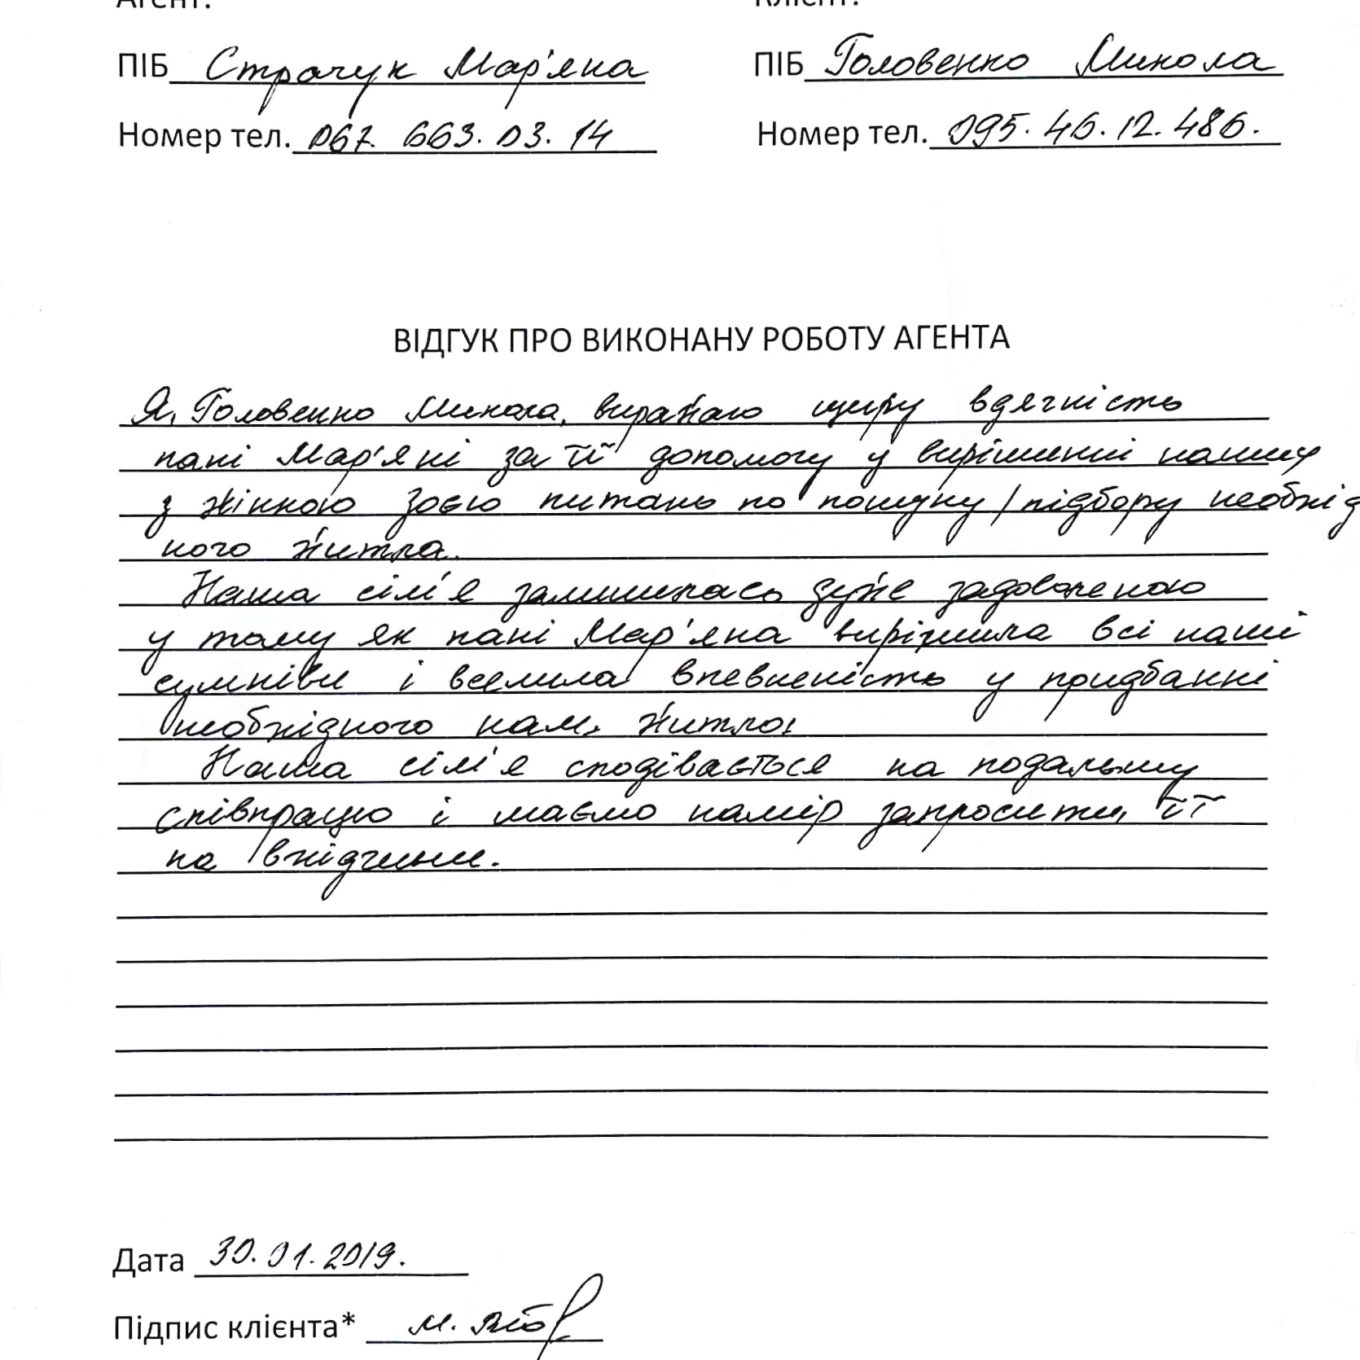 Агент: Клієнт:
ПІБ Страчук Мар'яна ПІБ Головенко Микола
Номер тел. 067. 663. 03. 14 Номер тел. 095. 46. 12. 486.
ВІДГУК ПРО ВИКОНАНУ РОБОТУ АГЕНТА
Я, Головенко Микола, виражаю щиру вдячність
пані Мар'яні за її допомогу у вирішенні наших
з жінкою Зоєю питань по пошуку / підбору необхід
ного житла.
Наша сім'я залишилась дуже задоволеною
у тому як пані Мар'яна вирішила всі наші
сумніви і вселила впевненість у придбанні
необхідного нам житла.
Наша сім'я сподівається на подальшу
співпрацю і маємо намір запросити її
на вхідчини.
Дата 30.01.2019.
Підпис клієнта* М.